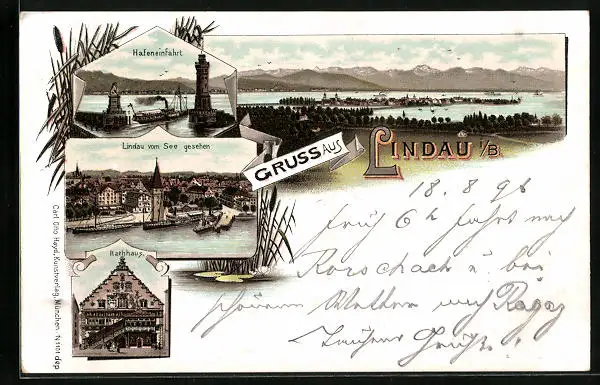 Hafeneinfahrt
Lindau vom See gesehen
Rathhaus.
GRUSS AUS
LINDAU i/B.
Carl Otto Hayd, Kunstverlag, München. N. 1101 dep
18. 8 96
früh 6 h fahrt nach
Rorschach u. bei
schönem Wetter nach Ragaz
Grüße